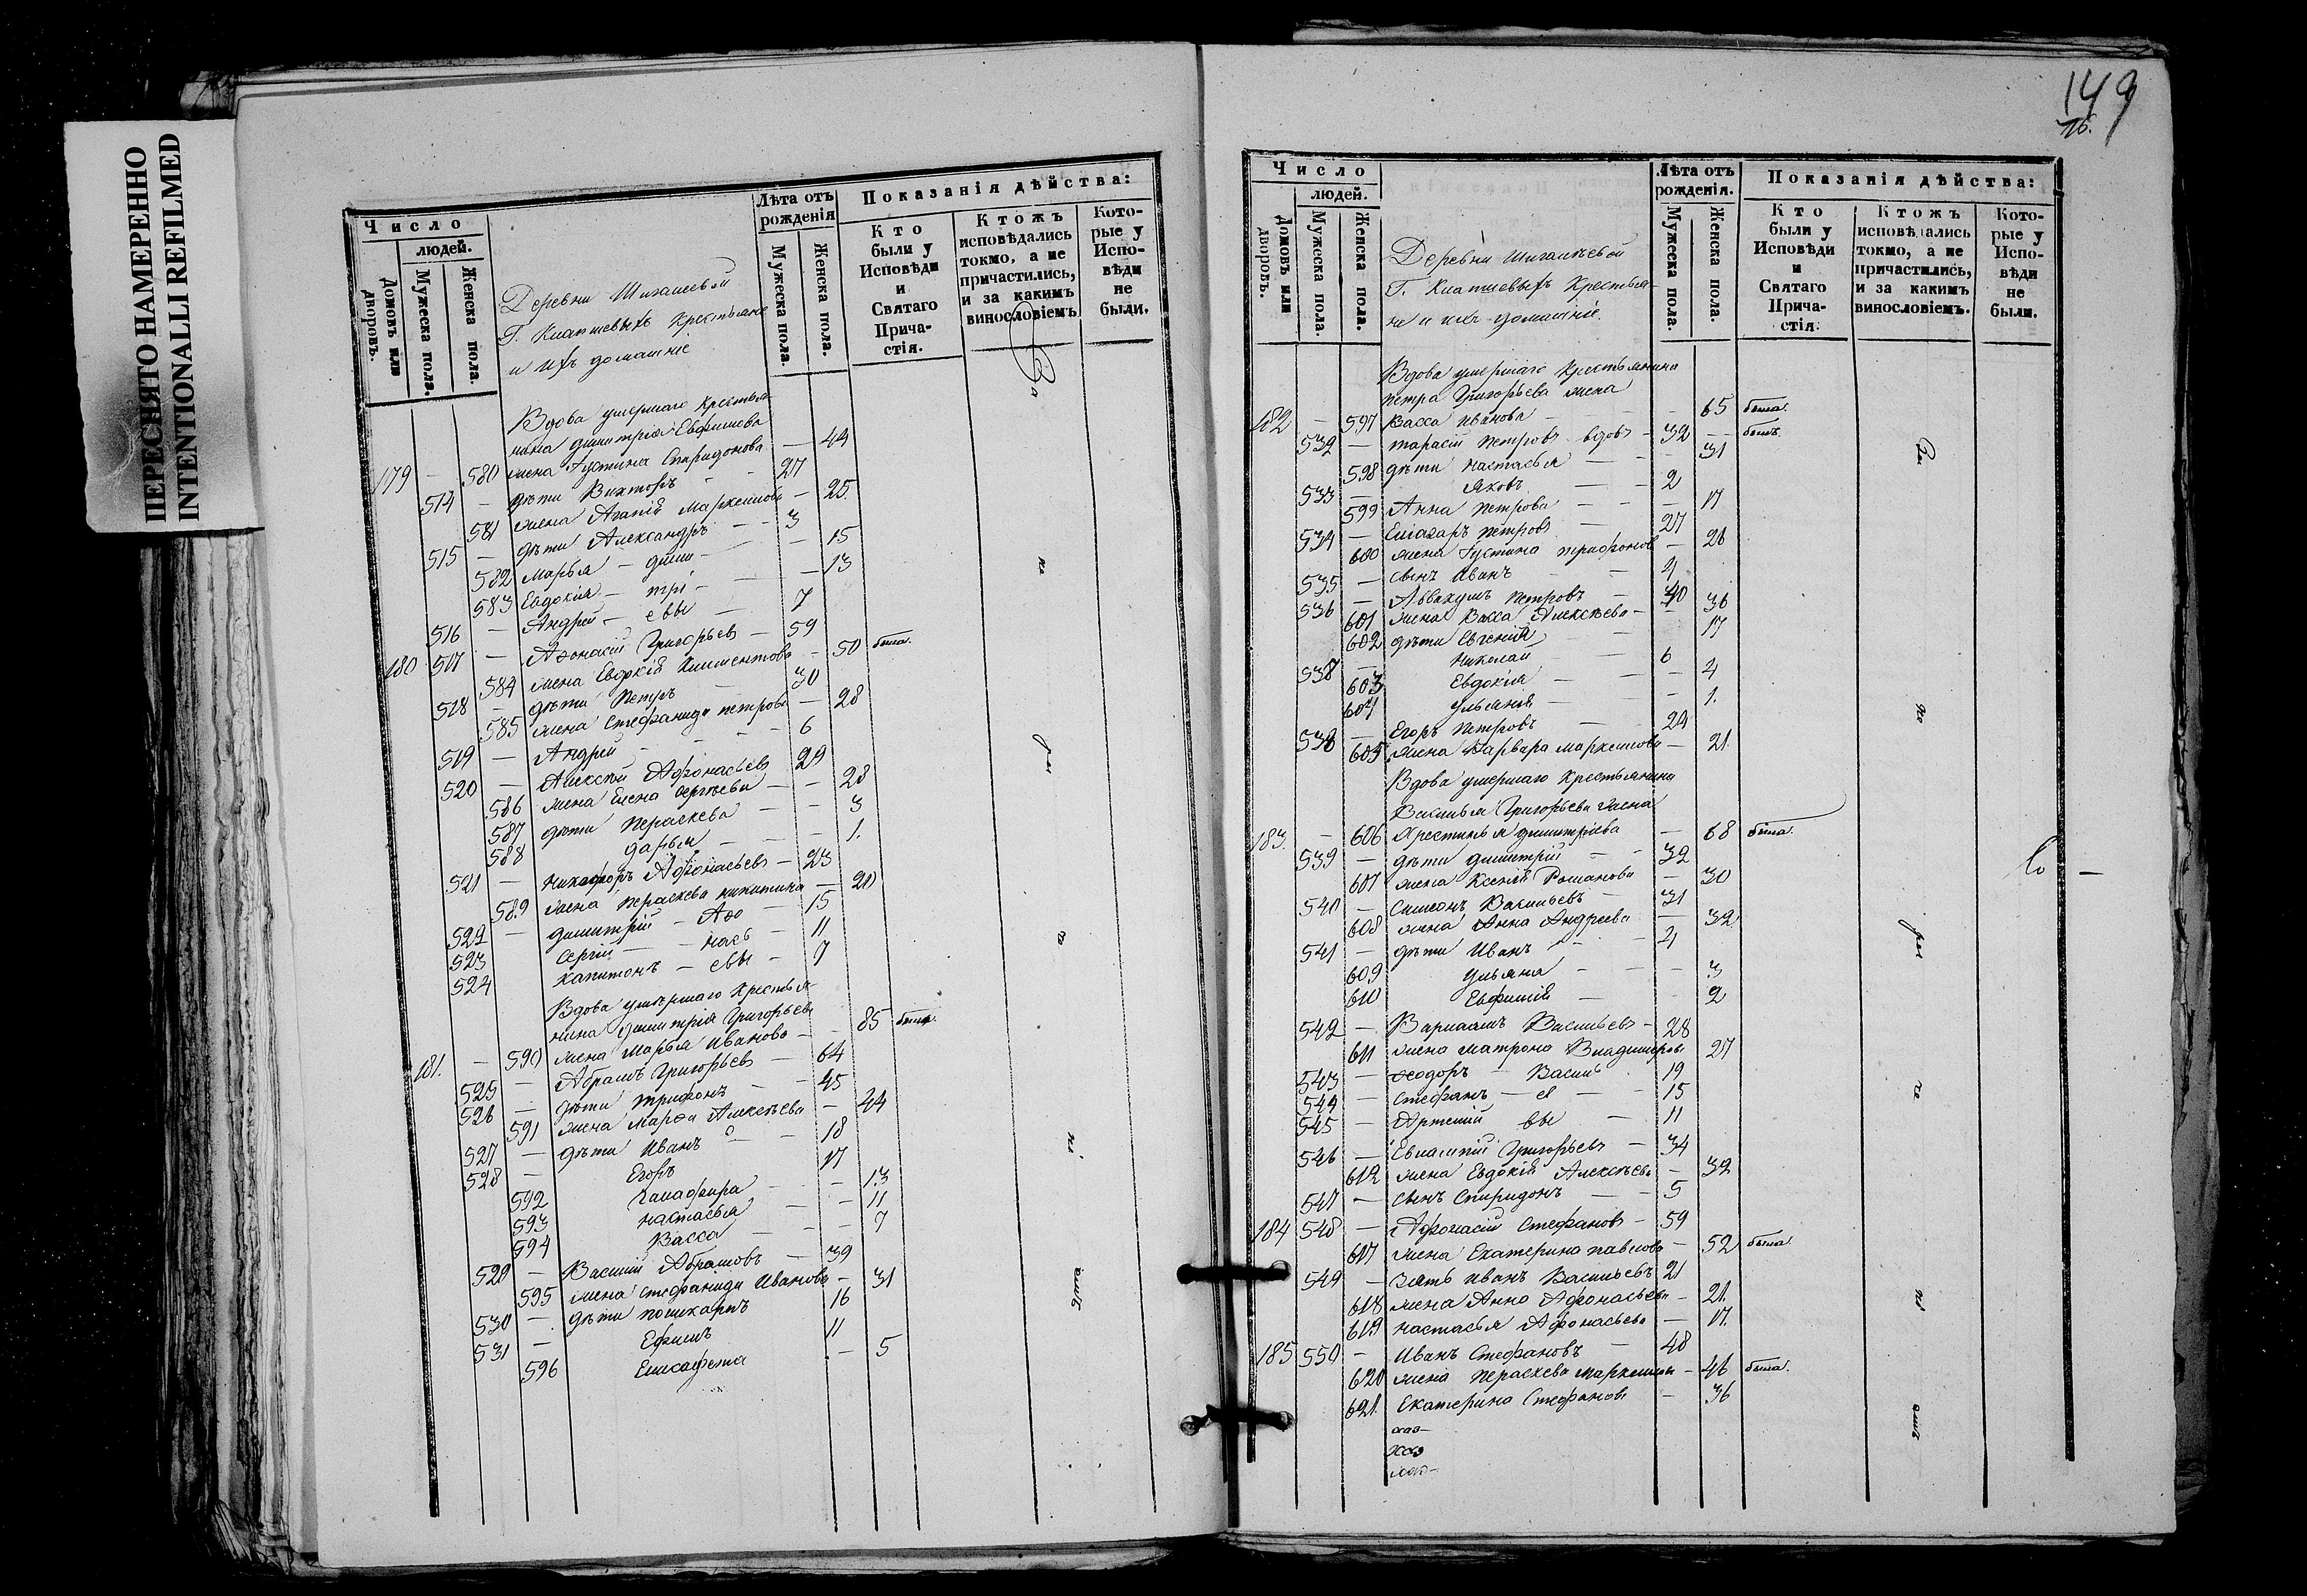 ПЕРЕСНЯТО НАМЕРЕННО
INTENTIONALLI REFILMED
Число
людей.
Домовъ или дворовъ.
Мужеска пола.
Женска пола.
Деревни
Г. Крестьяне
и ихъ домашніе
Лѣта отъ рожденія
Мужеска пола.
Женска пола.
Показанія дѣйства:
Кто были у Исповѣди и Святаго Прича-стія.
Ктожъ исповѣдались токмо, а не причастились, и за какимъ винословіемъ
Кото-рые у Испо-вѣди не были.
Вдова умершаго Крестья-
нина Димитрія Евфимова
179 — 580 жена Густина Спиридонова — 44
514 — дѣти Викторъ - 27
581 жена Агапія Маркеллова - 25.
515 — дѣти Александръ - - 3
582 Марья - дими - - 15
583 Евдокія - трі - - 13
516 — Андрей - евы - 7
180 517 — Афонасій Григорьевъ - 59
584 жена Евдокія Климентова - 50 была.
518 — дѣти Петръ - 30
585 жена Стефанида Петрова - 28
519 — Андрей - - 6
520 — Алексѣй Афонасьевъ 29
586 жена Елена Сергѣева - - 28
587 дѣти Параскева - - 3
588 Дарья - - 1.
521 — Никифоръ Афонасьевъ - 23
589 жена Параскева Никитина - 20
522 — Димитрій - Афо - 15
523 Сергій - нась - 11
524 Капитонъ - евы - 9
Вдова умершаго Крестья-
нина Димитрія Григорьева
181. — 590 жена Марья Иванова - - 85 была.
525 — Абрамъ Григорьевъ - 64
526 — дѣти Трифонъ - - 45
591 жена Марфа Алексѣева - 44
527 — дѣти Иванъ - - 18
528 — Егоръ 17
592 - - 13
593 Настасья - - 11
594 Васса - - 7
529 — Василій Абрамовъ - 39
595 жена Стефанида Иванова - 31
530 — дѣти Поликарпъ 16
531 — Ефимъ 11
596 Елисафета - 5
149
Число
людей.
Домовъ или дворовъ.
Мужеска пола.
Женска пола.
Деревни
Г. Крестья-
не и ихъ домашніе.
Лѣта отъ рожденія.
Мужеска пола.
Женска пола.
Показанія дѣйства:
Кто были у Исповѣди и Святаго Прича-стія.
Ктожъ исповѣдались токмо, а не причастились, и за какимъ винословіемъ.
Кото-рые у Испо-вѣди не были.
Вдова умершаго Крестьянина
Петра Григорьева жена
182 — 597 Васса Иванова - - 65 была.
532 — Тарасій Петровъ вдовъ - 32 - былъ.
598 дѣти Настасья - - 31
533 — Яковъ - - 2
599 Анна Петрова - - 17
534 — Елиазаръ Петровъ - 27
600 жена Густина Трифонов - 26
535 — сынъ Иванъ - - 4
536 — Аввакумъ Петровъ - 40
601 жена Васса Алексѣева - - 36
602 дѣти Евгенія - 17
537 — Николай - - 6
603 Евдокія - - 4
604 Ульянія - - 1.
538 — Егоръ Петровъ - 24
605 жена Варвара Маркеллова - 21
Вдова умершаго Крестьянина
Василья Григорьева жена
183. — 606 Христинья Димитріева - 68 была.
539 — дѣти Димитрій - - 32
607 жена Ксенія Романова - 30
540 — Симеонъ Васильевъ - 31
608 жена Анна Андреева - 32
541 — дѣти Иванъ - - 4
609 Ульяна - - 3
610 Евфимія - 2
542 — Варлаамъ Васильевъ - 28
611 жена Матрона Владимерова 27
543 — Феодоръ - Василь 19
544 — Стефанъ - е - 15
545 — Артемій вы - 11
546 — Евлампій Григорьевъ - 34
612 жена Евдокія Алексѣева - 32
547 — сынъ Спиридонъ - - 5
184 548 — Афонасій Стефановъ - 59
617 жена Екатерина Павлова - 52 была
549 — зять Иванъ Васильевъ 21
618 жена Анна Афонасьева - 21.
619 Настасья Афонасьева - 17.
185 550 — Иванъ Стефановъ - 48
620 жена Параскева - 46 была.
621. Екатерина Стефанова - 36